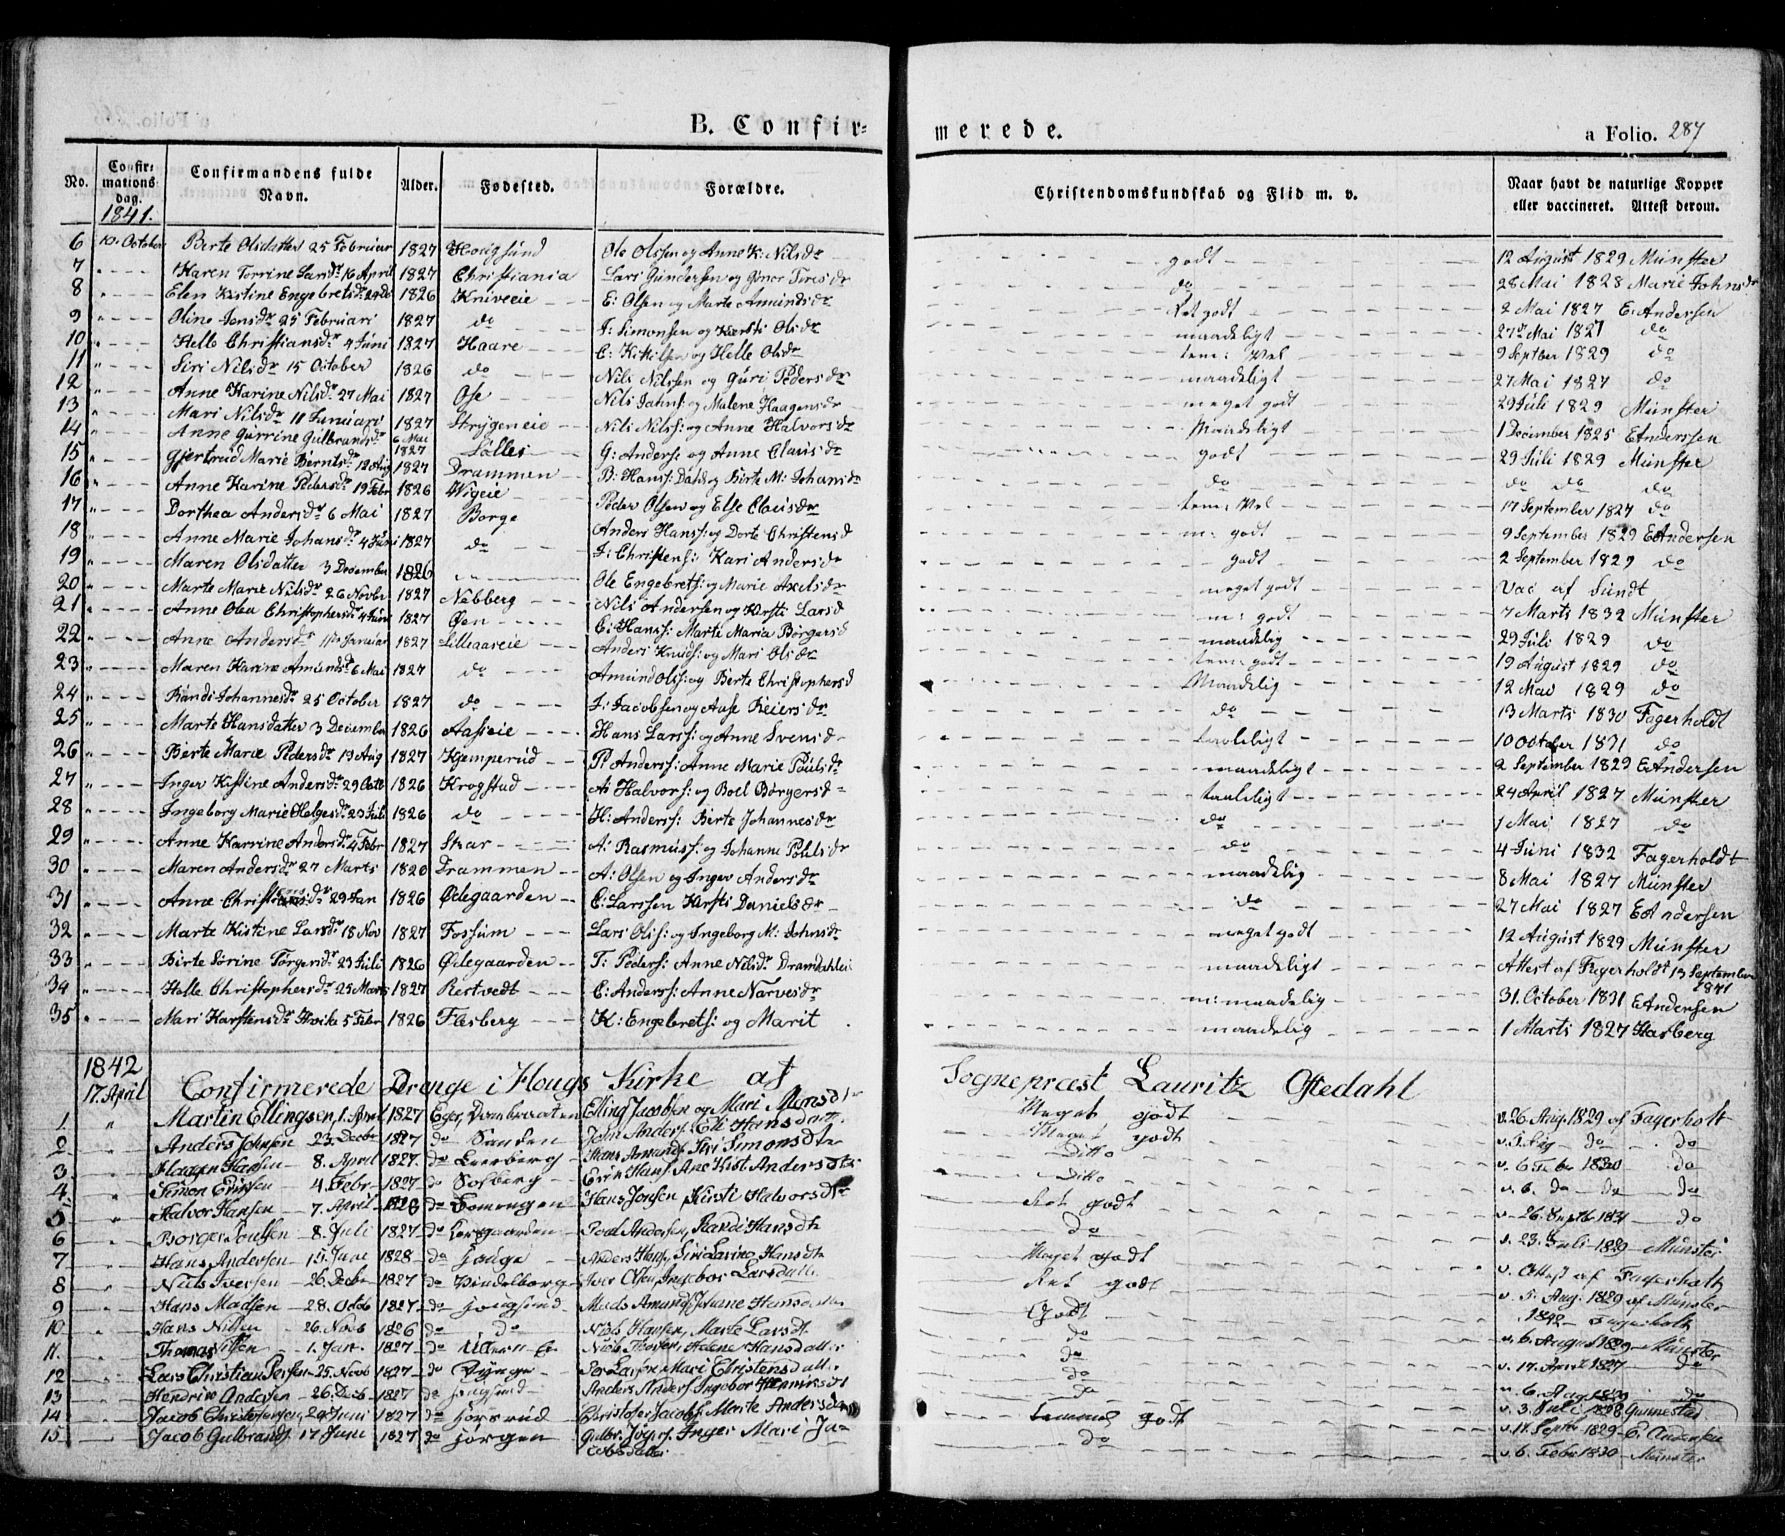 B. Confir-
merede.
a Folio. 287
No. Confir-mations dag. Confirmandens fulde Navn. Alder. Fødested. Forældre. Christendomskundskab og Flid m. v. Naar havt de naturlige Kopper eller vaccineret. Attest derom.
1841.
6 10. October Birte Olsdatter 25 Februar 1827 Hougsund Ole Olssen og Anne K: Nilsdr godt 12 August 1829 Münster
7 " Karen Torrine Larsdr 16 April 1827 Christiania Lars Gundersen og do 28 Mai 1828 Marie Johnsdr
8 " Elen Kistine Engebretsdr 1826 Kniveie E: Olsen og Marte Amundsdr Ret godt 2 Mai 1827 E: Andersen
9 " Oline Jensdr 25 Februari 1827 do J: Simonsen og Kersti Olsdr maadeligt 27 Mai 1827 do
10 " Helle Christiansdr 4 Juni 1827 Haare C: Kittilsen og Helle Olsdr tem: Vel 9 Septber 1829 do
11 " Siri Nilsdr 15 October 1826 do Nils Nilssen og Guri Pedersdr maadeligt 27 Mai 1827 do
12 " Anne Karine Nilsdr 27 Mai 1827 Ose Nils Jahns: og Malene Haagensdr meget godt 29 Juli 1829 Münster
13 " Mari Nilsdr 11 Januari 1827 Strygeneie Nils Nilss: og Anne Halvorsdr Maadeligt 1 December 1825 E Anderssen
14 " Anne Gurrine Gulbrandsdr 6 Mai 1827 Solles G: Anderse og Anne Clausdr godt 29 Juli 1829 Münster
15 " Gjertrud Marie Berntsdr 12 Aug 1827 Drammen B: Hanss: Dahl og Birte M: Johansdr do do do do
16 " Anne Karine Pedersdr 19 Febr 1826 Wigeie Peder Olsen og Else Clausdr tem: Vel 17 September 1827 do
17 " Dorthea Andersdr 6 Mai 1827 Borge Anders Hanss: og Dorte Christensd m: godt 9 September 1829 E Andersen
18 " Anne Marie Johansdr 4 Juni 1827 do J: Christens: Kari Andersdr godt 2 September 1829 do
19 " Maren Olsdatter 3 December 1826 Ole Engebrets: og Marie Axelsdr meget godt Vac af Sundt
20 " Marte Marie Nilsdr 26 Novbr 1827 Nebberg Nils Andersen og Kirste Larsd m: godt 7 Marts 1832 Münster
21 " Anne Olea Christophersdr 4 Juni 1827 Øen C: Hanss: Marte Maria Børgersd maadelig 29 Juli 1829 do
22 " Anne Andersdr Januar 1827 Lilleaaseie Anders Knuds: og Mari Olsdr tem: godt 19 August 1829 do
23 " Maren Karine Amundsdr 6 Mai 1827 do Amund Olss: og Berte Christophersd Maadelig 12 Mai 1829 do
24 " Randi Johannesdr 25 October 1827 do J: Jacobsen og Aase Reiersdr do 13 Marts 1830 Fagerholdt
25 " Marte Hansdatter 3 December 1826 Aaseie Hans Larss: og Anne Svensd taaleligt 10 October 1831 do
26 " Berte Marie Pedersdr 13 Aug 1827 Kjemperud P: Anderss: Anne Marie Poulsdr maadeligt 2 September 1829 E Andersen
27 " Inger Kistine Andersdr 29 Octb 1826 Krogstad A: Halvors: og Boel Børgersd taaleligt 24 April 1827 Münster
28 " Ingeborg Marie Helgesdr 23 Juli 1826 do H: Anderss: Birte Johannesdr do 1 Mai 1827 do
29 " Anne Karrine Andersdr 4 Febr 1827 Skar A: Rasmuss: og Johanne Poulsdr do 4 Juni 1832 Fagerholdt
30 Maren Andersdr 27 Marts 1820 Drammen A: Olsen og Inger Andersdr maadelig 8 Mai 1827 Münster
31 " Anne Christensdr 29 Jan 1826 Ødegaarden C: Larssen Kersti Danielsdr do 27 Mai 1827 E Andersen
32 " Marte Kistene Larsdr 18 Nov 1827 Fossum Lars Olss: og Ingeborg M: Johnsdr meget godt 12 August 1829 Münster
33 " Birte Sørine Torgersdr 23 Juli 1826 Ødegaarden T: Peders: Anne Nilsdr Dramdahlei maadeligt Attest af Fagerholdt 13 September 1841
34 " Helle Christophersdr 25 Marts 1827 Restvedt C: Anderss: Anne Narvesdr m: maadelig 31. October 1831 E Andersen
35 " Mari Karstensdr Hvika 5 Febr 1826 Flesberg K: Engebrets: og Marit maadelig 1 Marts 1827 Hasberg
1842 17. April Confirmerede Drenge i Hougs Kirke af Sognepræst Lauritz Oftedahl
1 " Martin Ellingsen 1. April 1827 Eger, Dombraaten Elling Jacobsen og Mari Monsdtr Meget godt v. 26 Aug. 1829 af Fagerholt
2 " Anders Johnsen 23. Decbr 1827 do Sanden John Anders: Elli Hansdatt. Meget godt v. 5. do do
3 " Haagen Hansen 8. April 1827. do Leerberg Hans Amunds: Siri Simonsdtr Ditto v. 6 Febr 1830 do
4 " Simon Eriksen 4. Febr 1827 do Solberg Erik Hans: Ane Kist. Andersdtr Ditto v. 6. do do do
5 " Halvor Hansen 7. April 1828 do Hans Jonsen, Kirsti Halvorsdtr Ret godt v. 26. Septb 1831 do
6 " Børger Poulsen 8. Juli 1827 do Poul Andersen, Randi Hansdt do v. 23. Juli 1829 Münster
7 " Hans Andersen 15. June 1828 do Houge Anders Hans: Siri Larine Hansdt Meget godt v. Attest af Fagerholt
8 " Niels Iversen 26. Decbr 1827 do Vindelborg Iver Olsen, Ingebor Larsdatt. Ret godt v. 5. Aug. 1829 af Münster
9 " Hans Madsen 28. Octb 1827 do Hougsund Mads Amunds: Johane Hansdatter Godt 1842 Fagerholt
10 " Hans Nilsen 26. Novb 1826 do do Niels Hansen, Marte Larsdt. do v. 6. August 1829 Münster
11. " Thomas Nilsen 1. Jan. 1827 do Niels Thors: Helene Hansdatter do v. 17. April 1827 do
12 " Lars Christian Persen 25. Novb 1827 do Per Larsen Mari Christensdatter do v. 6. Aug. 1829 do
13 " Hendrik Andersen 26. Decb 1827 do Hougsund Anders Anders: Ingebor Henriksdt do v. 3. Juli 1828 Gunnestad
14 " Jacob Christofersen 29 Juni 1827 do Horsrud Christofer Jacobs: Marte Andersdtr Temmel godt v. 11. Septbr 1829 E. Andersen
15 " Jacob Gulbrands. 17 Juni 1827 do Horgen Gulbr: Inger Mari Jacobsdatter do v. 6. Febr 1830 Münster